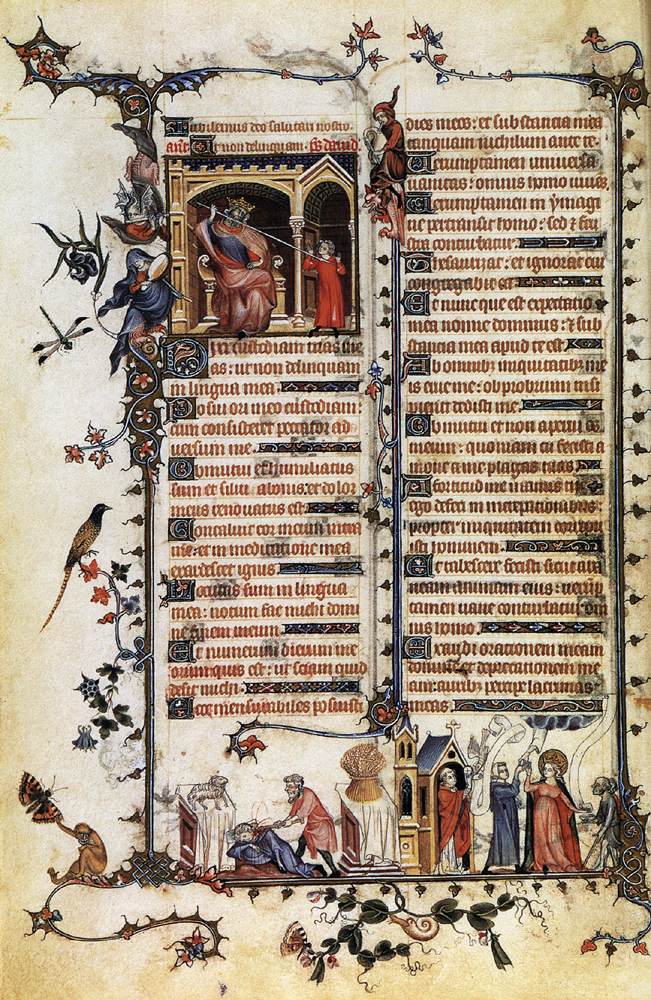 Iubilemus deo salutari nostro
ant. Ut non delinquam. ps dauid.
Dixi custodiam uias me
as: ut non delinquam
in lingua mea.
Posui ori meo custodiam:
cum consisteret peccator ad
uersum me.
Obmutui et humiliatus
sum et silui a bonis: et dolor
meus renouatus est.
Concaluit cor meum intra
me: et in meditatione mea
exardescet ignis.
Locutus sum in lingua
mea: notum fac michi domi
ne finem meum.
Et numerum dierum me
orum quis est: ut sciam quid
desit michi.
Ecce mensurabiles posuisti
dies meos: et substancia mea
tanquam nichilum ante te.
Verumptamen uniuersa
uanitas: omnis homo uiuens.
Verumptamen in ymagi
ne pertransit homo: sed et frus
tra conturbatur.
Thesaurizat: et ignorat cui
congregabit ea.
Et nunc que est expectatio
mea nonne dominus: et sub
stancia mea apud te est.
Ab omnibus iniquitatibus me
is erue me: obprobrium insi
pienti dedisti me.
Obmutui et non aperui os
meum: quoniam tu fecisti a
moue a me plagas tuas.
A fortitudine manus tue
ego defeci in increpationibus:
propter iniquitatem corripu
isti hominem.
Et tabescere fecisti sicut ara
neam animam eius: uerump
tamen uane conturbatur om
nis homo.
Exaudi orationem meam
domine et deprecationem me
am: auribus percipe lacrimas
meas.